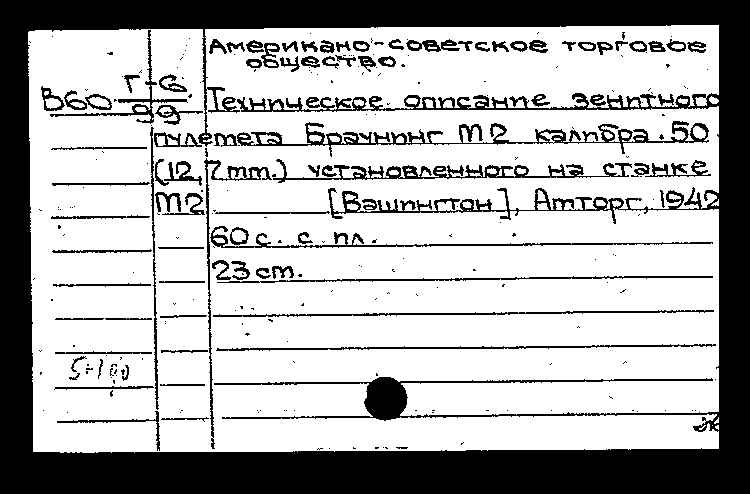 Американо-советское торговое
общество.
В60 Г-6
99
Техническое описание зенитного
пулемета Браунинг М2 калибра .50
(12,7 mm.) установленного на станке
М2 [Вашингтон], Амторг, 1942
60 с. с пл.
23 cm.